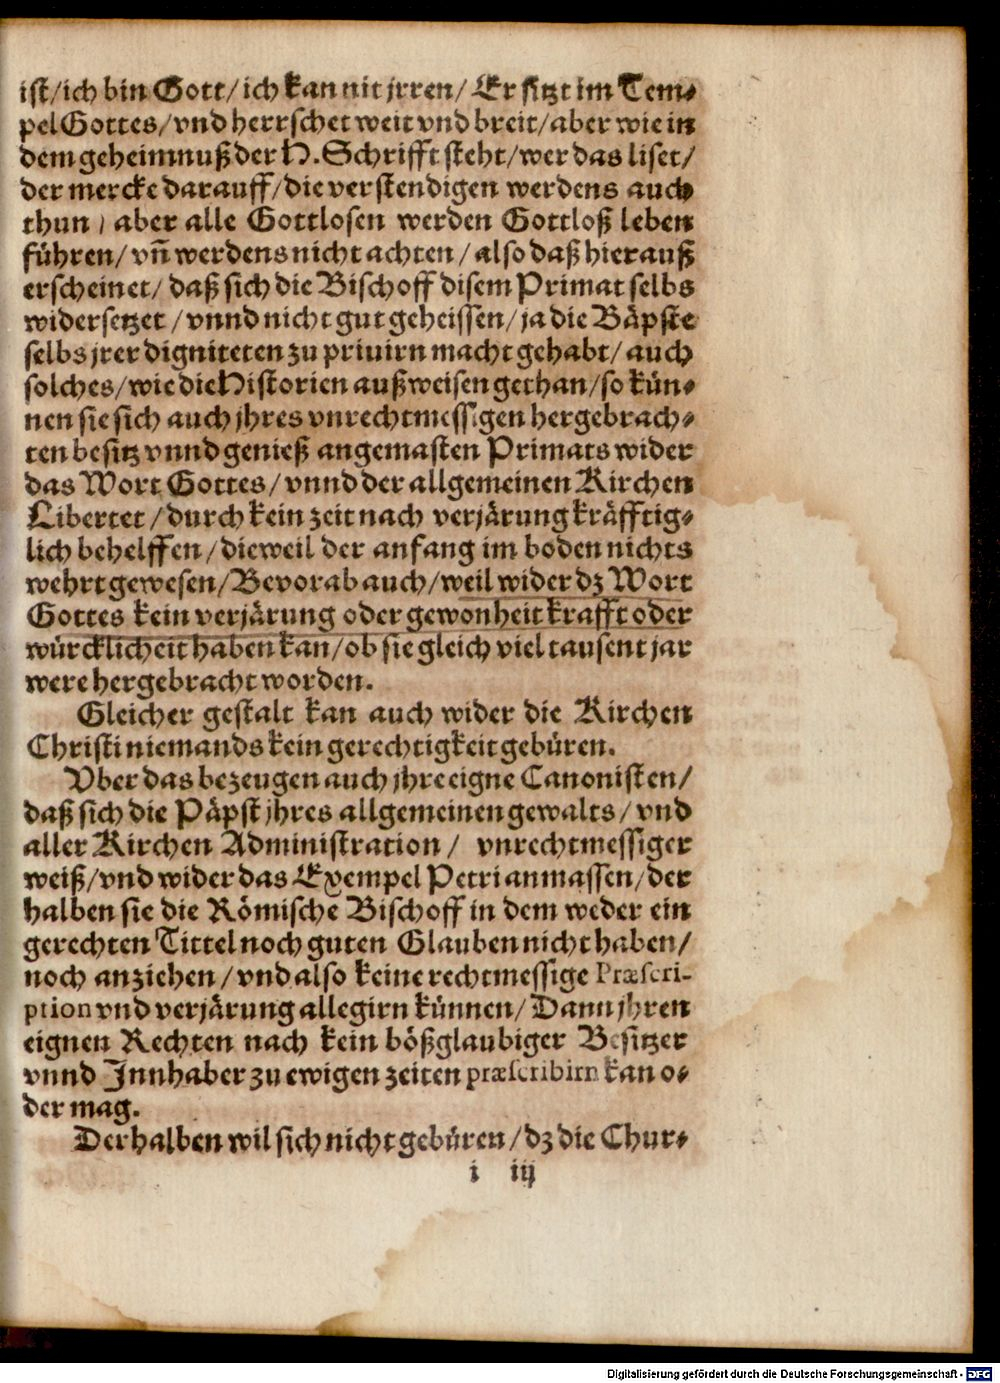 ist/ich bin Gott/ich kan nit jrren/Er sitzt im Tem⸗
pel Gottes/vnd herrschet weit vnd breit/aber wie in
dem geheimnuß der H. Schrifft steht/wer das liset/
der mercke darauff/die verstendigen werdens auch
thun/aber alle Gottlosen werden Gottloß leben
führen/vñ werdens nicht achten/also daß hierauß
erscheinet/daß sich die Bischoff disem Primat selbs
widersetzet/vnnd nicht gut geheissen/ja die Bäpste
selbs jrer digniteten zu priuirn macht gehabt/auch
solches/wie die Historien außweisen gethan/so kün⸗
nen sie sich auch jhres vnrechtmessigen hergebrach⸗
ten besitz vnnd genieß angemasten Primats wider
das Wort Gottes/vnnd der allgemeinen Kirchen
Libertet/durch kein zeit nach verjärung kräfftig⸗
lich behelffen/dieweil der anfang im boden nichts
wehrt gewesen/Bevorab auch/weil wider dz Wort
Gottes kein verjärung oder gewonheit krafft oder
würcklicheit haben kan/ob sie gleich viel tausent jar
were hergebracht worden.
Gleicher gestalt kan auch wider die Kirchen
Christi niemands kein gerechtigkeit gebüren.
Vber das bezeugen auch jhre eigne Canonisten/
daß sich die Päpst jhres allgemeinen gewalts/vnd
aller Kirchen Administration/ vnrechtmessiger
weiß/vnd wider das Exempel Petri anmassen/der
halben sie die Römische Bischoff in dem weder ein
gerechten Tittel noch guten Glauben nicht haben/
noch anziehen/vnd also keine rechtmessige Præscri-
ption vnd verjärung allegirn künnen/Dann jhren
eignen Rechten nach kein bößglaubiger Besitzer
vnnd Innhaber zu ewigen zeiten præscribirn kan o⸗
der mag.
Derhalben wil sich nicht gebüren/dz die Chur⸗
i iij
Digitalisierung gefördert durch die Deutsche Forschungsgemeinschaft - DFG